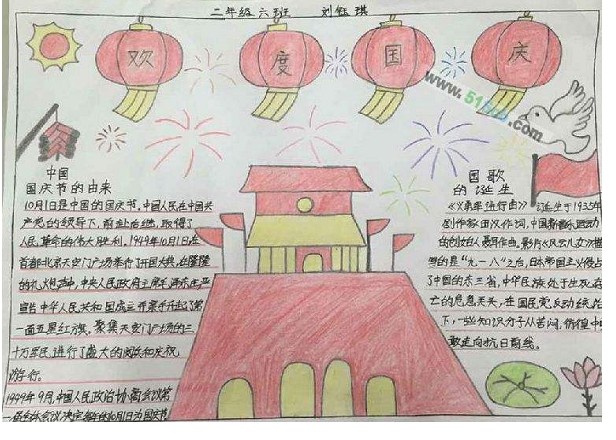 二年级六班 刘钰琪
欢度国庆
www.51
.com
中国
国庆节的由来
10月1日是中国的国庆节,中国人民在中国共
产党的领导下,前赴后继,取得了
人民革命的伟大胜利,1949年10月1日在
首都北京天安门广场举行了开国大典,在隆隆
的礼炮声中,中央人民政府主席毛泽东庄严
宣告中华人民共和国成立并亲手升起了第
一面五星红旗,聚集天安门广场的三
十万军民,进行了盛大的阅兵和庆祝
游行。
1949年9月,中国人民政治协商会议第
一届全体会议决定
国歌
的诞生
《义勇军进行曲》诞生于1935年
田汉作词,中国新音乐运动
的创始人聂耳作曲,影片《风云儿女
的是“九一八”之后,日本帝国主义侵占
了中国的东三省,中华民族处于生死存
亡的危急关头,在国民党反动统治
下,一些知识分子从苦闷,彷徨中
敢走向抗日前线。